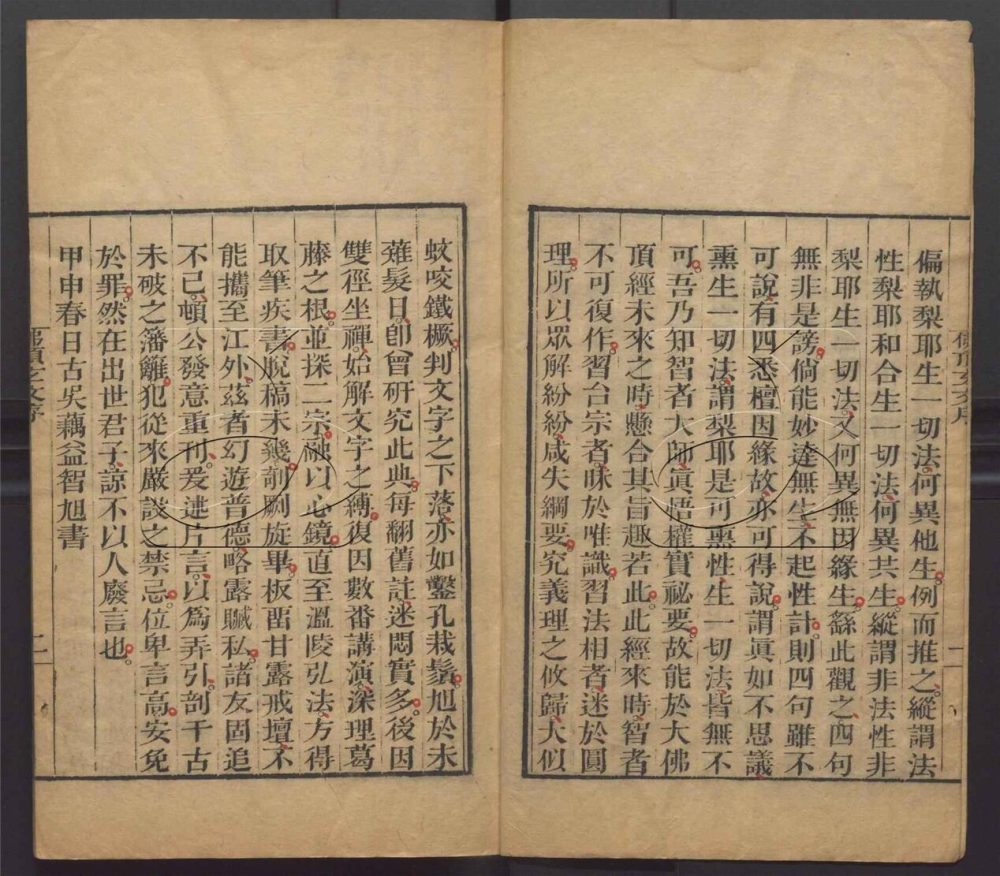 偏執梨耶生一切法。何異他生。例而推之。縱謂法
性梨耶和合生一切法。何異共生。縱謂非法性非
梨耶生一切法。又何異無因緣生。繇此觀之。四句
無非是謗。倘能妙達無生。不起性計。則四句雖不
可說。有四悉檀因緣故。亦可得說。謂真如不思議
熏生一切法。謂梨耶是可熏性生一切法。皆無不
可。吾乃知智者大師真悟權實祕要。故能於大佛
頂經未來之時。懸合其旨趣若此。此經來時。智者
不可復作。習台宗者昧於唯識。習法相者。迷於圓
理。所以眾解紛紛。咸失綱要。究義理之攸歸。大似
蚊咬鐵橛。判文字之下落。亦如鑿孔栽鬚。旭於未
薙髮日。卽曾研究此典。每翻舊註。迷悶實多。後因
雙徑坐禪。始解文字之縛。復因數番講演。深理葛
藤之根。並探二宗。融以心鏡。直至溫陵弘法。方得
取筆疾書。脫稿未幾。剞劂旋畢。板畱甘露戒壇。不
能攜至江外。茲者幻遊普德。略露贓私。諸友固追
不已。頓公發意重刊。爰述片言。以爲弄引。剖千古
未破之籓籬。犯從來嚴護之禁忌。位卑言高。安免
於罪。然在出世君子。諒不以人廢言也。
甲申春日古吳藕益智旭書